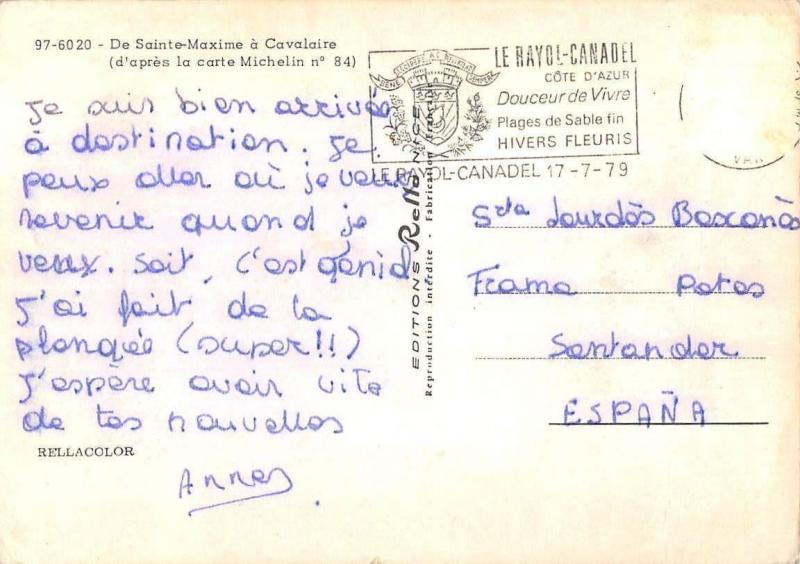 97-6020 - De Sainte-Maxime à Cavalaire
(d'après la carte Michelin n° 84)
je suis bien arrivée
à destination. je
peux aller où je veux
revenir quand je
veux. soit, c'est génial
J'ai fait de la
plongée (super!!)
J'espère avoir vite
de tes nouvelles
RELLACOLOR
Annes
EDITIONS Rella NICE
Reproduction interdite - Fabrication Française
LE RAYOL-CANADEL
CÔTE D'AZUR
Douceur de Vivre
Plages de Sable fin
HIVERS FLEURIS
LE RAYOL-CANADEL 17-7-79
VAR
Srta Lourdès Bascanès
Frama Potes
Santander
ESPAÑA